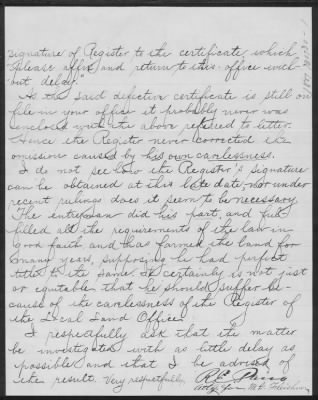 signature of Register to the certificate, which
please affix and return to this office with-
out delay."
As the said defective certificate is still
file in your office it probably never was
enclosed with the above referred to letter.
Hence the Register never corrected the
omission caused by his own carelessness.
I do not see how the Register's signature
can be obtained at this late date, nor under
recent rulings does it seem to be necessary.
The entryman did his part, and ful-
filled all the requirements of the law in
good faith and has farmed the land for
many years, supposing he had perfect
title to the same. It certainly is not just
or equitable that he should suffer be-
cause of the carelessness of the Register of
the Local Land Office.
I respectfully ask that the matter
be investigated with as little delay as
possible and that I be advised of
the result. Very respectfully,
R E
Atty for M. E.